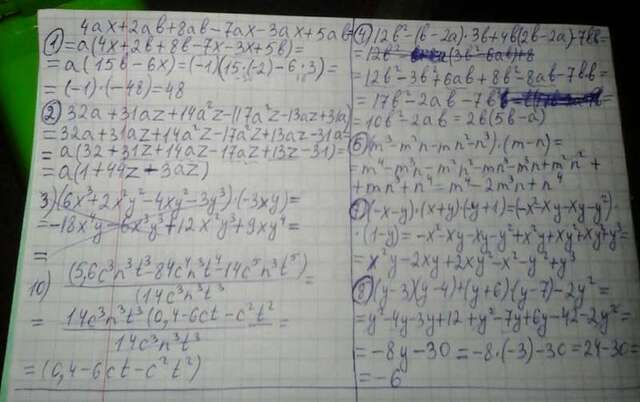 4ax+2ab+8ab-7ax-3ax+5ab=
① =a(4x+2b+8b-7x-3x+5b)=
=a(15b-6x)=(-1)(15·(-2)-6·3)=
=(-1)·(-48)=48
② 32a+31az+14a²z-(17a²z-13az+31a)=
=32a+31az+14a²z-17a²z+13az-31a=
=a(32+31z+14az-17az+13z-31)=
=a(1+44z-3az)
3)(6x³+2x²y²-4xy²-3y³)·(-3xy)=
=-18x⁴y-6x³y³+12x²y³+9xy⁴=
=
10) (5,6c³n³t³-84c⁴n³t⁴-14c⁵n³t⁵)=
(14c³n³t³
= 14c³n³t³(0,4-6ct-c²t²)=
14c³n³t³
=(0,4-6ct-c²t²)
④ 12b²-(b-2a)·3b+4b(2b-2a)-7bb=
=12b²-(3b²-6ab)+8
=12b²-3b²+6ab+8b²-8ab-7bb=
=17b²-2ab-7b²
=10b²-2ab=2b(5b-a)
(m³-m²n-mn²-n³)·(m-n)=
=m⁴-m³n-m²n²-mn³-m³n+m²n²+
+mn³+n⁴=m⁴-2m³n+n⁴
(-x-y)·(x+y)·(-y+1)=(-x²-xy-xy-y²)·
·(1-y)=-x²-xy-xy-y²+x²y+xy²+xy²+y³=
=x²y-2xy+2xy²-x²-y²+y³
⑧ (y-3)(y-4)+(y+6)(y-7)-2y²=
=y²-4y-3y+12+y²-7y+6y-42-2y²=
=-8y-30=-8·(-3)-30=24-30=
=-6